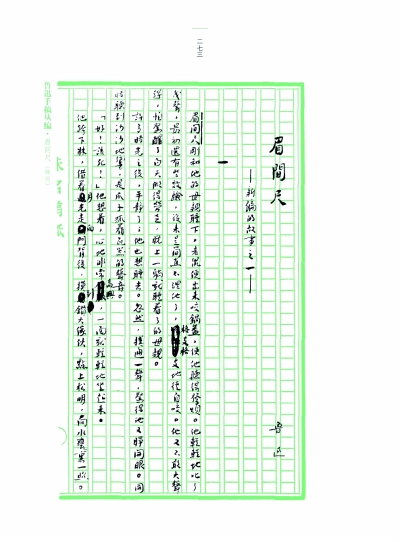 二七三
眉間尺
——新編的故事之一——
魯迅
一
眉間尺剛和他的母親睡下,老鼠便出來咬鍋蓋,使他聽得發煩。他輕輕地叱了
幾聲,最初還有些效驗,後來是簡直不理他了,格支格支地徑自咬。他又不敢大聲
趕,怕驚醒了白天做得勞乏,晚上一躺就睡着了的母親。
許多時光之後,平靜了;他也想睡去。忽然,撲通一聲,驚得他又睜開眼。同
時聽到沙沙地響,是爪子抓着瓦器的聲音。
「好!該死!」他想着,心地非常高興,一面就輕輕地坐起來。
他跨下牀,借着月光走向門背後,摸到鑽火傢伙,點上松明,向水甕裏一照。
鲁迅手稿丛编·